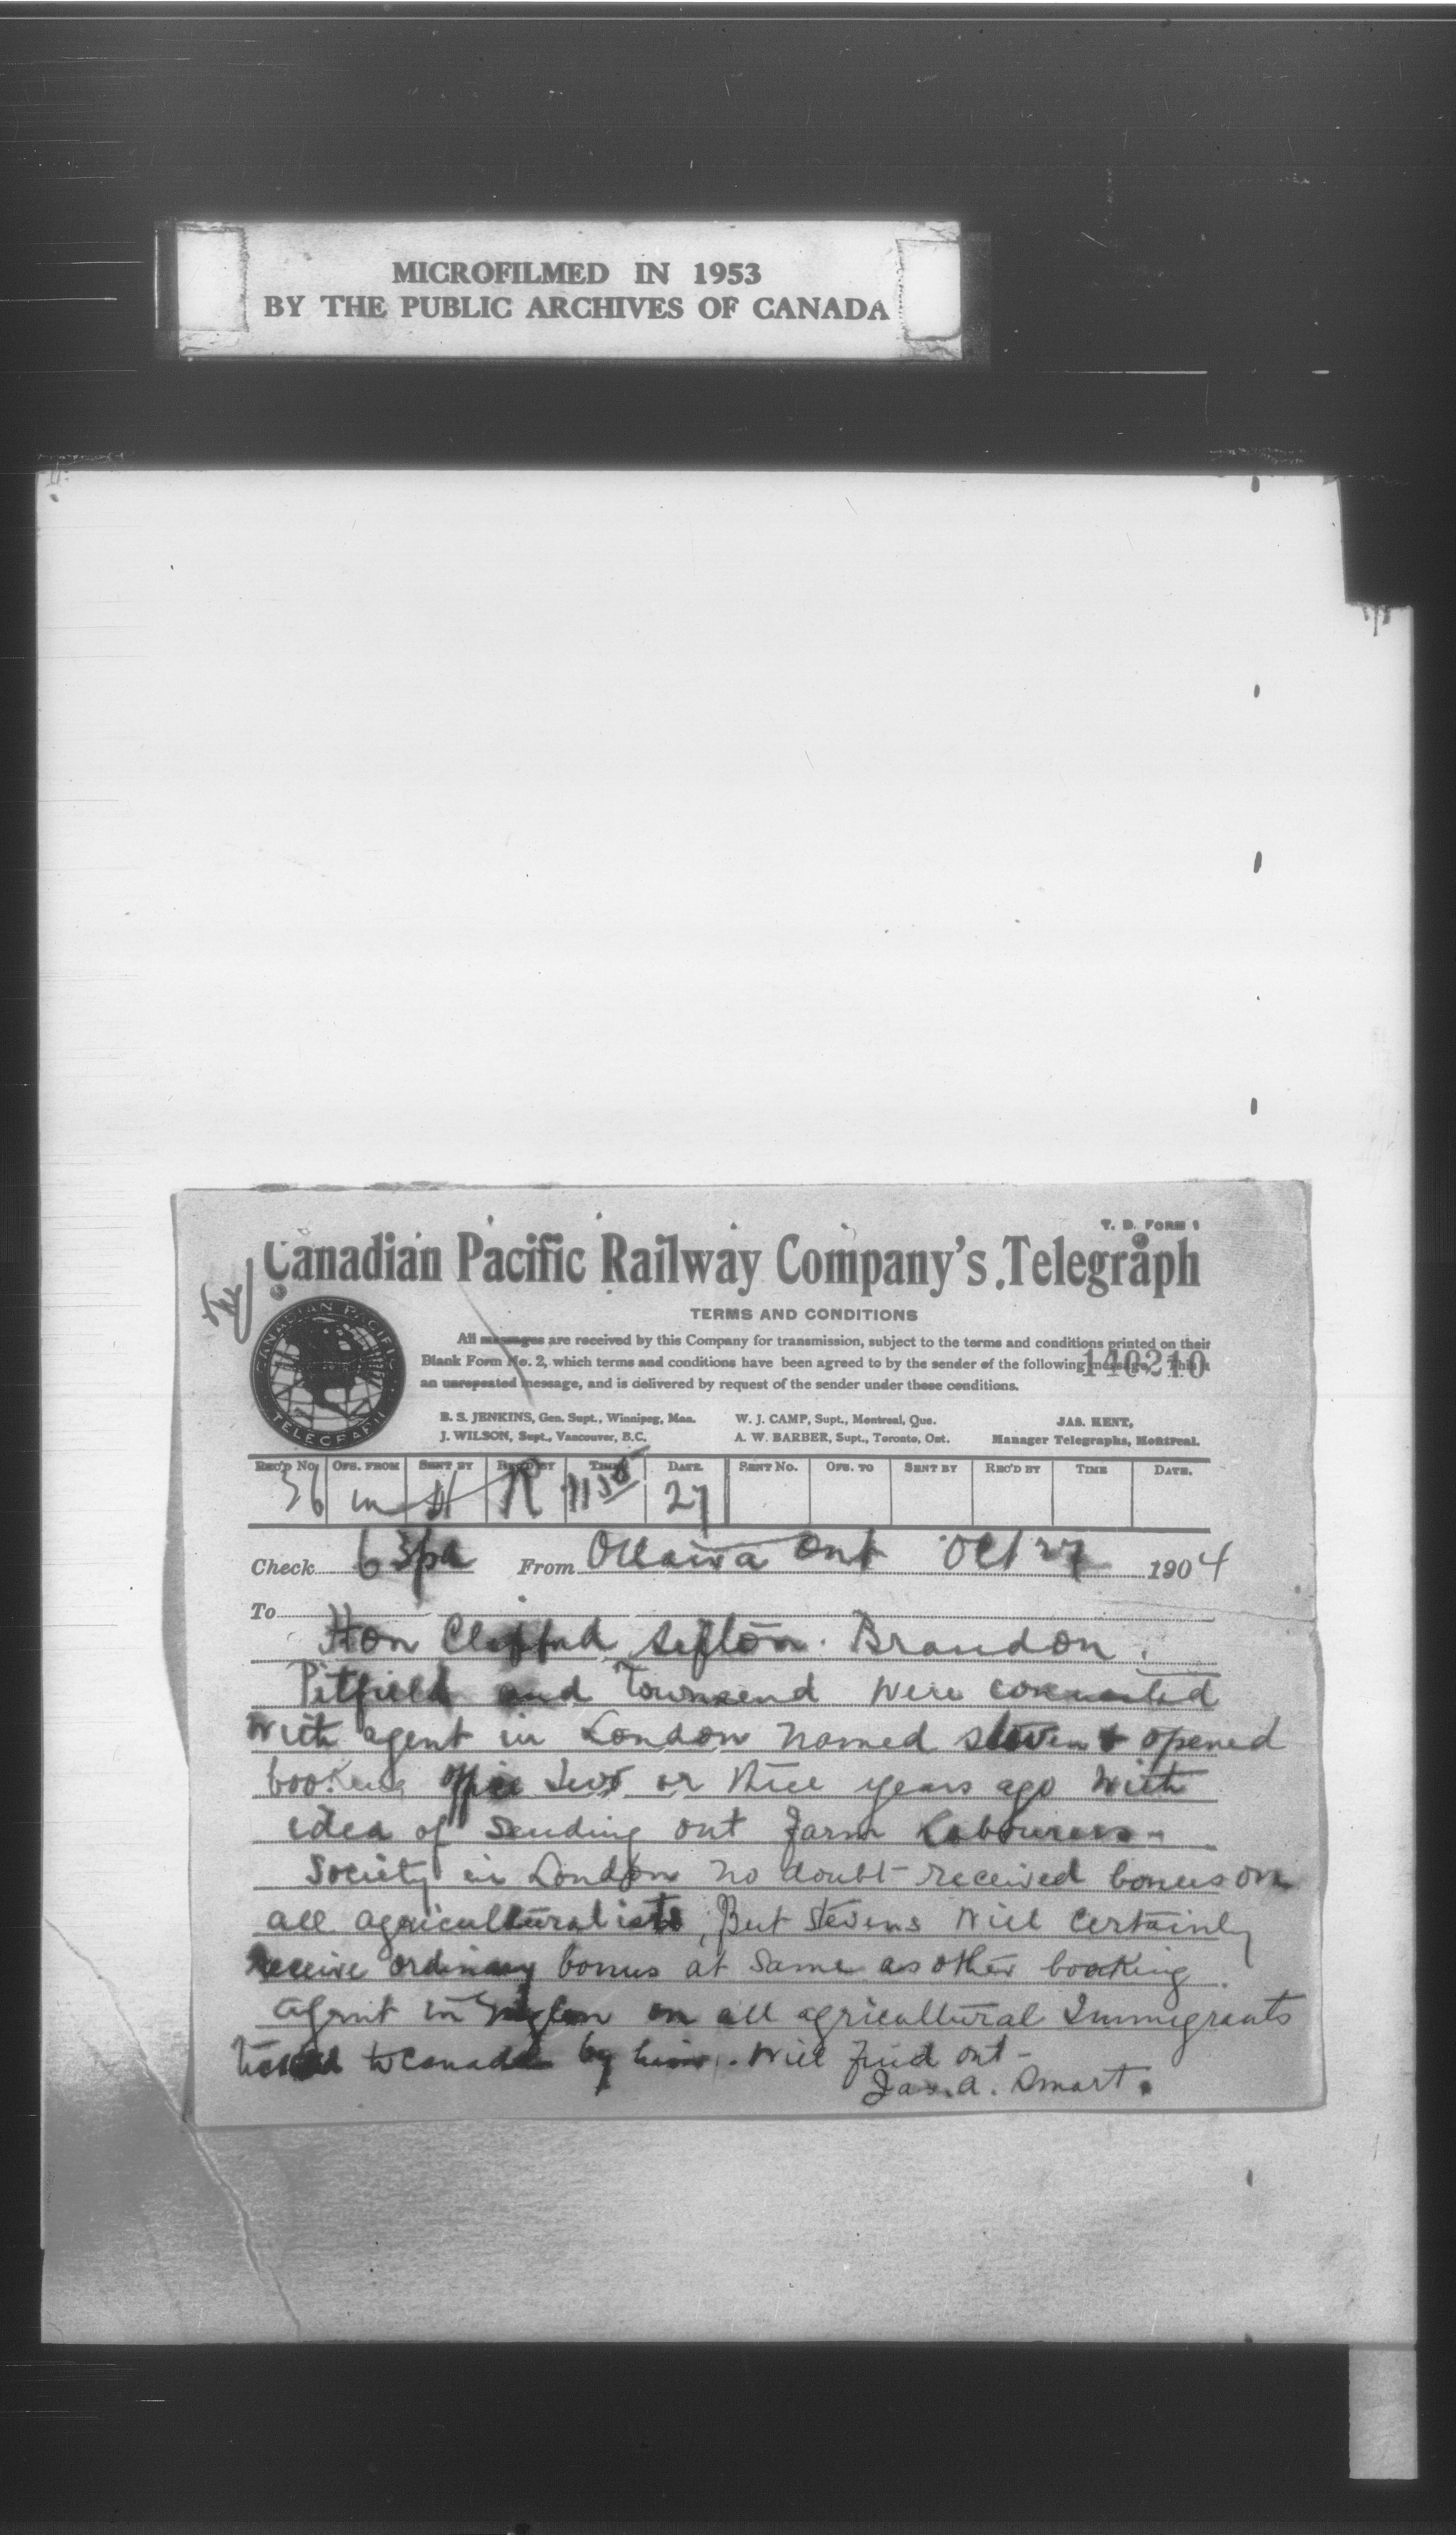 MICROFILMED IN 1953
BY THE PUBLIC ARCHIVES OF CANADA
T. D. FORM 1
Canadian Pacific Railway Company's Telegraph
TERMS AND CONDITIONS
All messages are received by this Company for transmission, subject to the terms and conditions printed on their
Blank Form No. 2, which terms and conditions have been agreed to by the sender of the following message. This is
140210
an unrepeated message, and is delivered by request of the sender under these conditions.
B. S. JENKINS, Gen. Supt., Winnipeg, Man. W. J. CAMP, Supt., Montreal, Que. JAS. KENT,
J. WILSON, Supt., Vancouver, B.C. A. W. BARBER, Supt., Toronto, Ont. Manager Telegraphs, Montreal.
REC'D NO. OFS. FROM SENT BY REC'D BY TIME DATE. SENT NO. OFS. TO SENT BY REC'D BY TIME DATE.
36 m H R 1130 27
Check 63pd From Ottawa Ont Oct 27 1904
To
Hon Clifford Sifton. Brandon.
Pitfield and Townsend were connected
with agent in London named Steven & opened
booking office two or three years ago with
idea of sending out farm labourers-
Society in London no doubt received bonus on
all agriculturalists, But Stevens will certainly
receive ordinary bonus at same as other booking
agent in on all agricultural Immigrants
to Canada by him. will find out-
Jas. A. Smart.
CANADIAN PACIFIC
TELEGRAPH